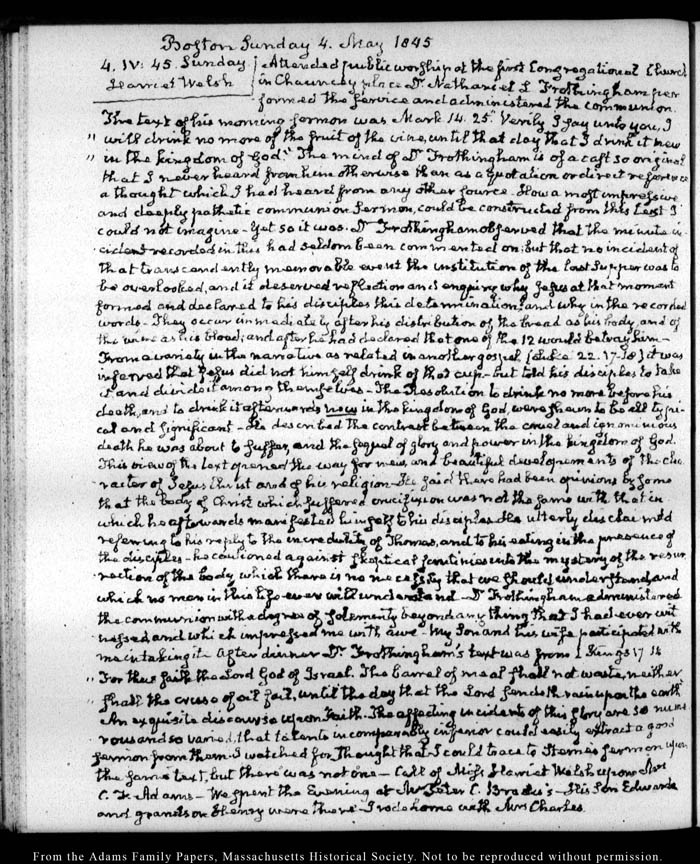 Boston Sunday 4. May 1845
4. IV: 45. Sunday.
Harriet Welsh
Attended public worship at the first Congregational Church
in Chauncey place Dr. Nathaniel L Frothingham per
formed the service and administered the communion.
The text of his morning sermon was Mark 14. 25. Verily I say unto you, I
" will drink no more of the fruit of the vine, until that day that I drink it new
" in the kingdom of God" The mind of Dr Frothingham is of a cast so original
that I never heard from him otherwise than as a quotation or direct reference
a thought which I had heard from any other source. How a most impressive
and deeply pathetic communion Sermon, could be constructed from this text I
could not imagine - Yet so it was. Dr Frothingham observed that the minute in
cident recorded in this had seldom been commented on: but that no incident of
that transcendently memorable event the institution of the last Supper was to
be overlooked, and it deserved reflection and enquiry why Jesus at that moment
formed and declared to his disciples this determination, and why in the recorded
words - They occur immediately after his distribution of the bread as his body, and of
the wine as his blood; and after he had declared that one of the 12 would betray him -
From a variety in the narrative as related in another gospel [Luke 22. 17-18] it was
inferred that Jesus did not himself drink of that cup - but told his disciples to take
it and divide it among themselves - The Resolution to drink no more before his
death, and to drink it afterwards new in the kingdom of God, were shewn to be all typi-
cal and significant - He described the contrast between the cruel and ignominious
death he was about to suffer, and the sequel of glory and power in the kingdom of God.
This view of the text opened the way for new, and beautiful developements of the cha
racter of Jesus Christ and of his religion - He said there had been opinions by some
that the body of Christ which suffered crucifixion was not the same with that in
which he afterwards manifested himself to his disciples. He utterly disclaimed
referring to his reply to the incredulity of Thomas, and to his eating in the presence of
the disciples - he cautioned against skeptical scrutinies into the mystery of the resur
rection of the body, which there is no necessity that we should understand, and
which no man in this life ever will understand - Dr Frothingham administered
the communion with a degree of solemnity beyond any thing that I had ever wit
nessed, and which impressed me with awe - My Son and his wife participated with
me in taking it. After dinner Dr. Frothingham's text was from 1 Kings 17 14
" For thus saith the Lord God of Israel. The barrel of meal shall not waste, neither
" shall the cruse of oil fail, until the day that the Lord sendeth rain upon the earth"
An exquisite discourse upon Faith. The affecting incidents of this story are so nume
rous and so varied, that talents incomparably inferior could easily extract a good
sermon from them. I watched for Thought that I could trace to Sterne's sermon upon
the same text, but there was not one - Call of Miss Harriet Welsh upon Mrs
C. F. Adams - We spent the Evening at Mr Peter C. Brooks's - His son Edward
and grandson Henry were there - I rode home with Mrs Charles.
From the Adams Family Papers, Massachusetts Historical Society. Not to be reproduced without permission.